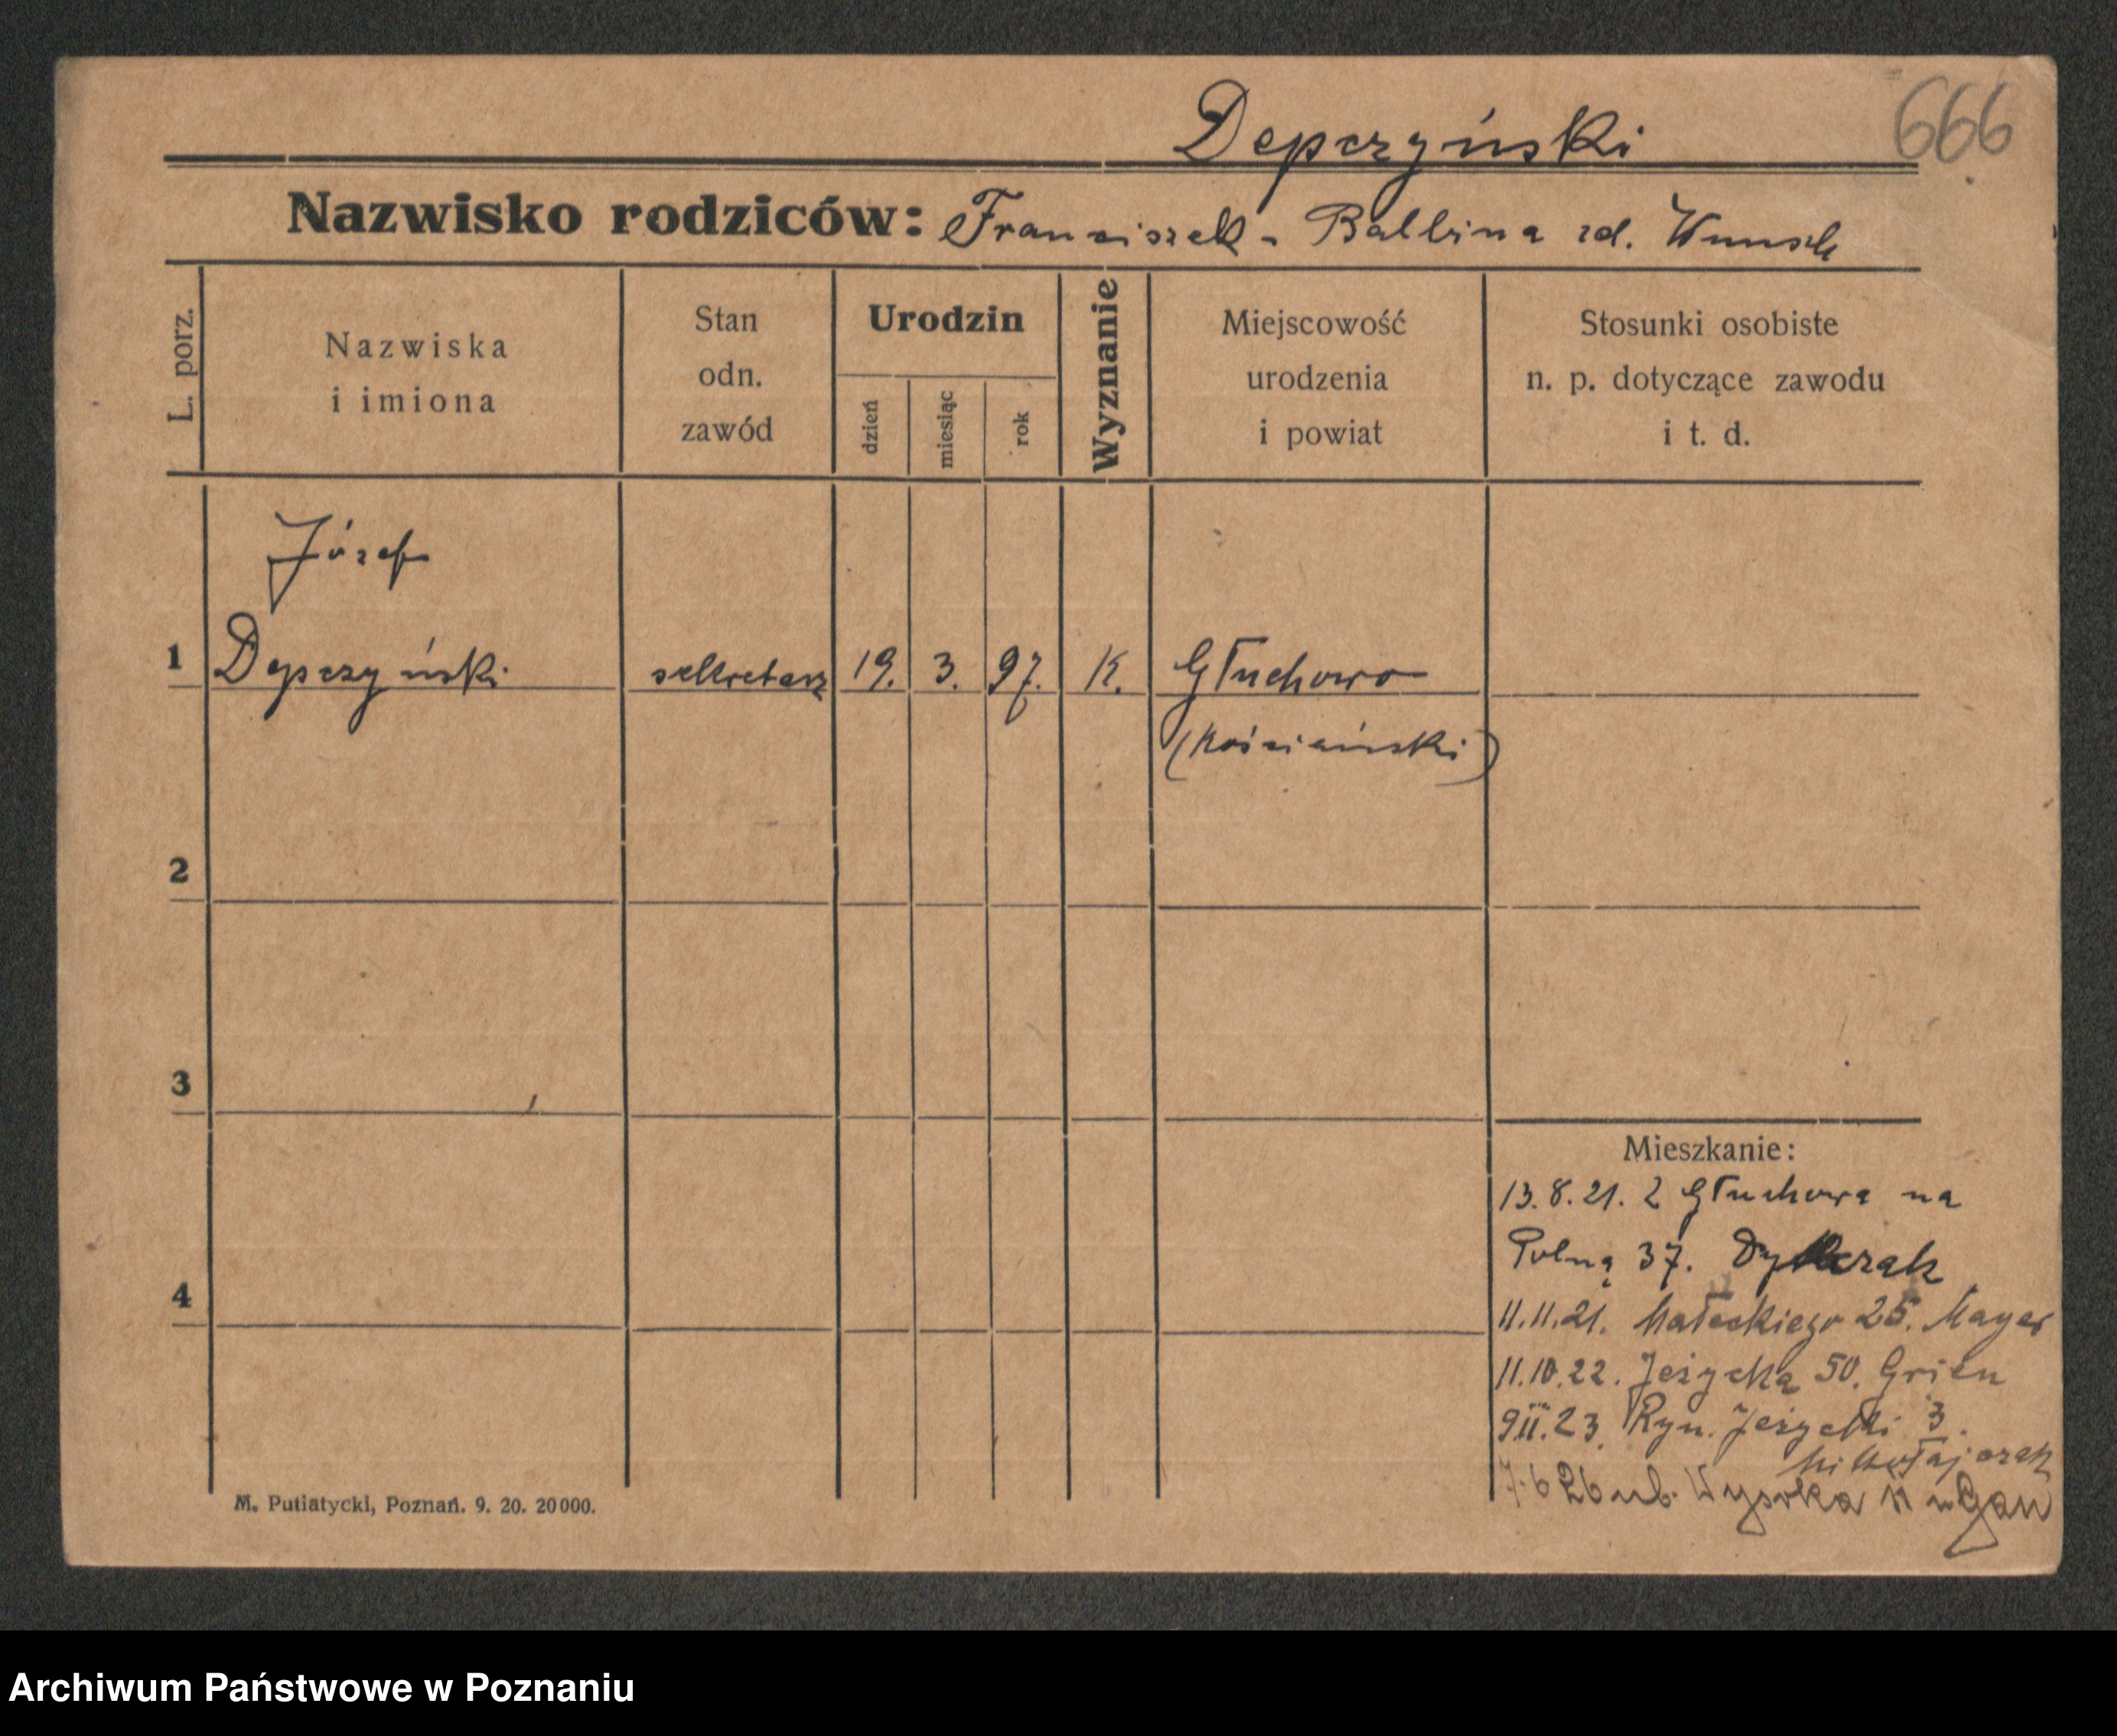 Depczyński
666
Nazwisko rodziców: Franciszek - Balbina zd. Wunsch
L. porz.
Nazwiska i imiona
Stan odn. zawód
Urodzin
dzień
miesiąc
rok
Wyznanie
Miejscowość urodzenia i powiat
Stosunki osobiste n. p. dotyczące zawodu i t. d.
Józef
1 Depczyński sekretarz 19. 3. 97. K. Głuchowo
(Kościański)
2
3
4
Mieszkanie:
13.8.21. z Głuchowa na
Polną 37.
11.11.21. Małeckiego 25. Mayer
11.10.22. Jeżycka 50. Grien
9.II.23. Ryn. Jeżycki 3.
Mikołajczak
7.6 26 Wysoka 11
M. Putiatycki, Poznań. 9. 20. 20000.
Archiwum Państwowe w Poznaniu